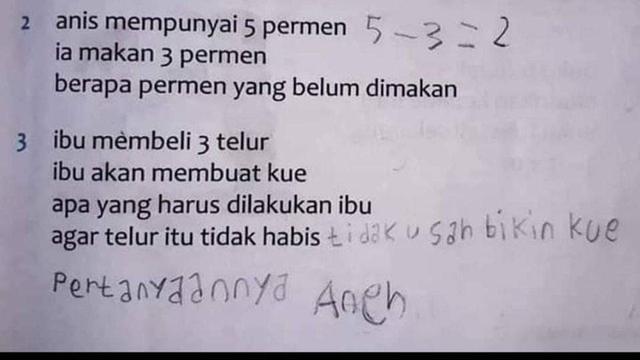 2 anis mempunyai 5 permen 5 - 3 = 2
ia makan 3 permen
berapa permen yang belum dimakan
3 ibu mèmbeli 3 telur
ibu akan membuat kue
apa yang harus dilakukan ibu
agar telur itu tidak habis tidak usah bikin kue
Pertanyaannya Aneh